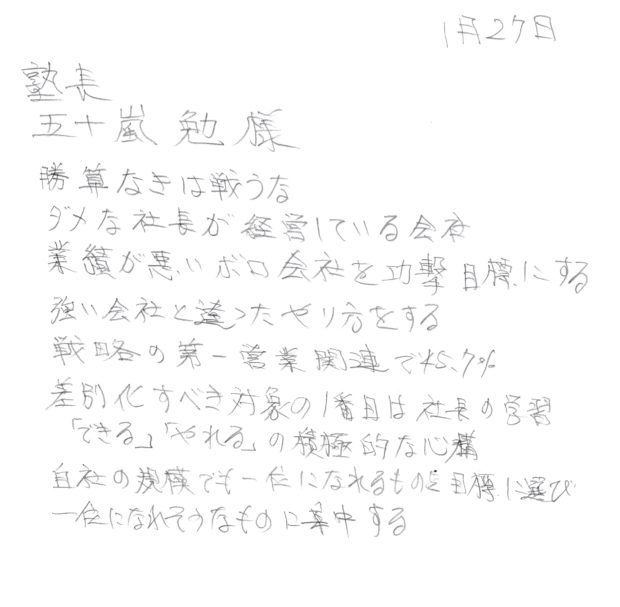 1月27日
塾長
五十嵐 勉 様
勝算なきは戦うな
ダメな社長が経営している会社
業績が悪いボロ会社を攻撃目標にする
強い会社と違ったやり方をする
戦略の第一営業関連で45.7%
差別化すべき対象の1番目は社長の学習
「できる」「やれる」の積極的な心構
自社の規模でも一位になれるものを目標に選び
一位になれそうなものに集中する